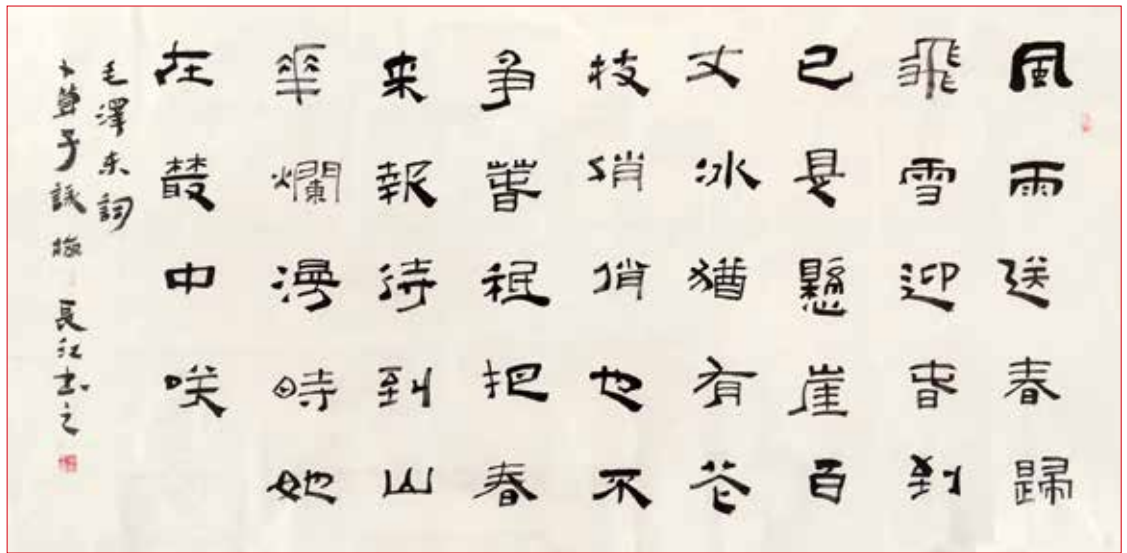 風雨送春歸
飛雪迎春到
已是懸崖百
丈冰猶有花
枝俏俏也不
爭春祗把春
来報待到山
華爛漫時她
在叢中咲
毛澤东詞
卜算子詠梅 長江书之